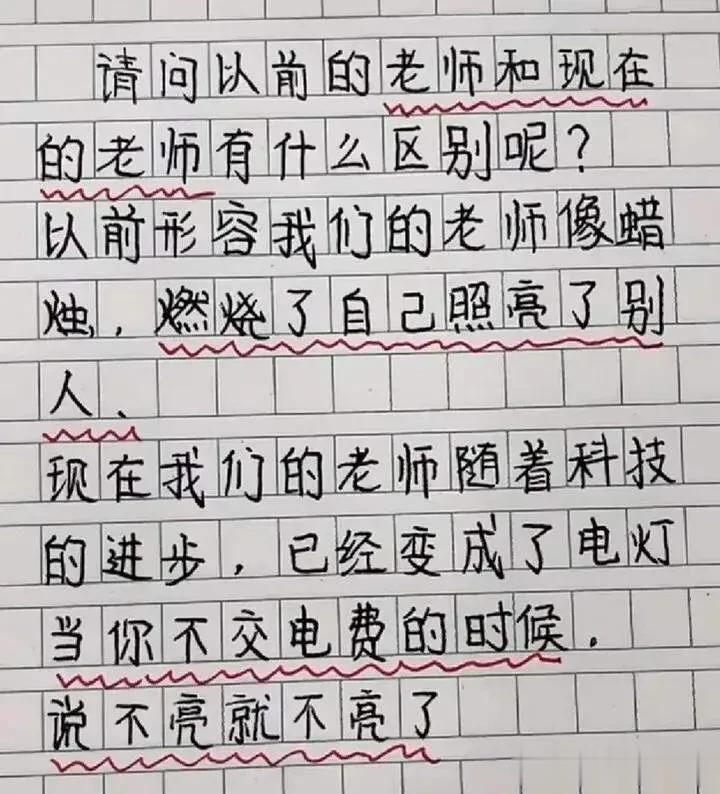 请问以前的老师和现在
的老师有什么区别呢?
以前形容我们的老师像蜡
烛,燃烧了自己照亮了别
人、
现在我们的老师随着科技
的进步,已经变成了电灯
当你不交电费的时候.
说不亮就不亮了